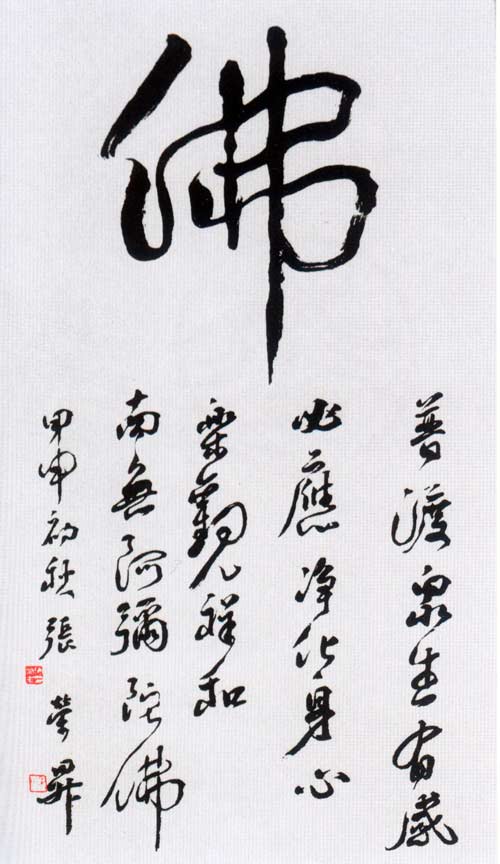 佛
普渡衆生有感
必應淨化身心
樂觀祥和
南無阿彌陀佛
甲申初秋 張榮昇